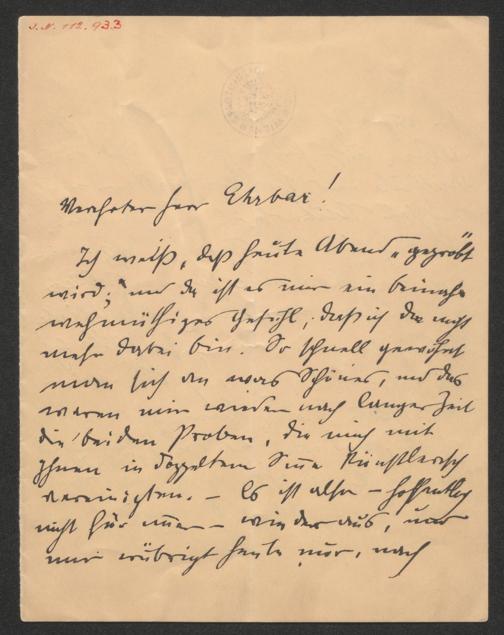 J.N. 112.933
Verehrter Herr Ehrbar!
Ich weiß, daß heute Abend „geprobt
wird;“ und da ist es mir ein beinahe
wehmüthiges Gefühl, daß ich da nicht
mehr dabei bin. So schnell gewöhnt
man sich an was Schönes, und das
waren mir wieder nach langer Zeit
die beiden Proben, die mich mit
Ihnen in doppeltem Sinne künstlerisch
vereinigten. – Es ist also – hoffentlich
nicht für immer – wieder aus, und
mir erübrigt heute nur, noch